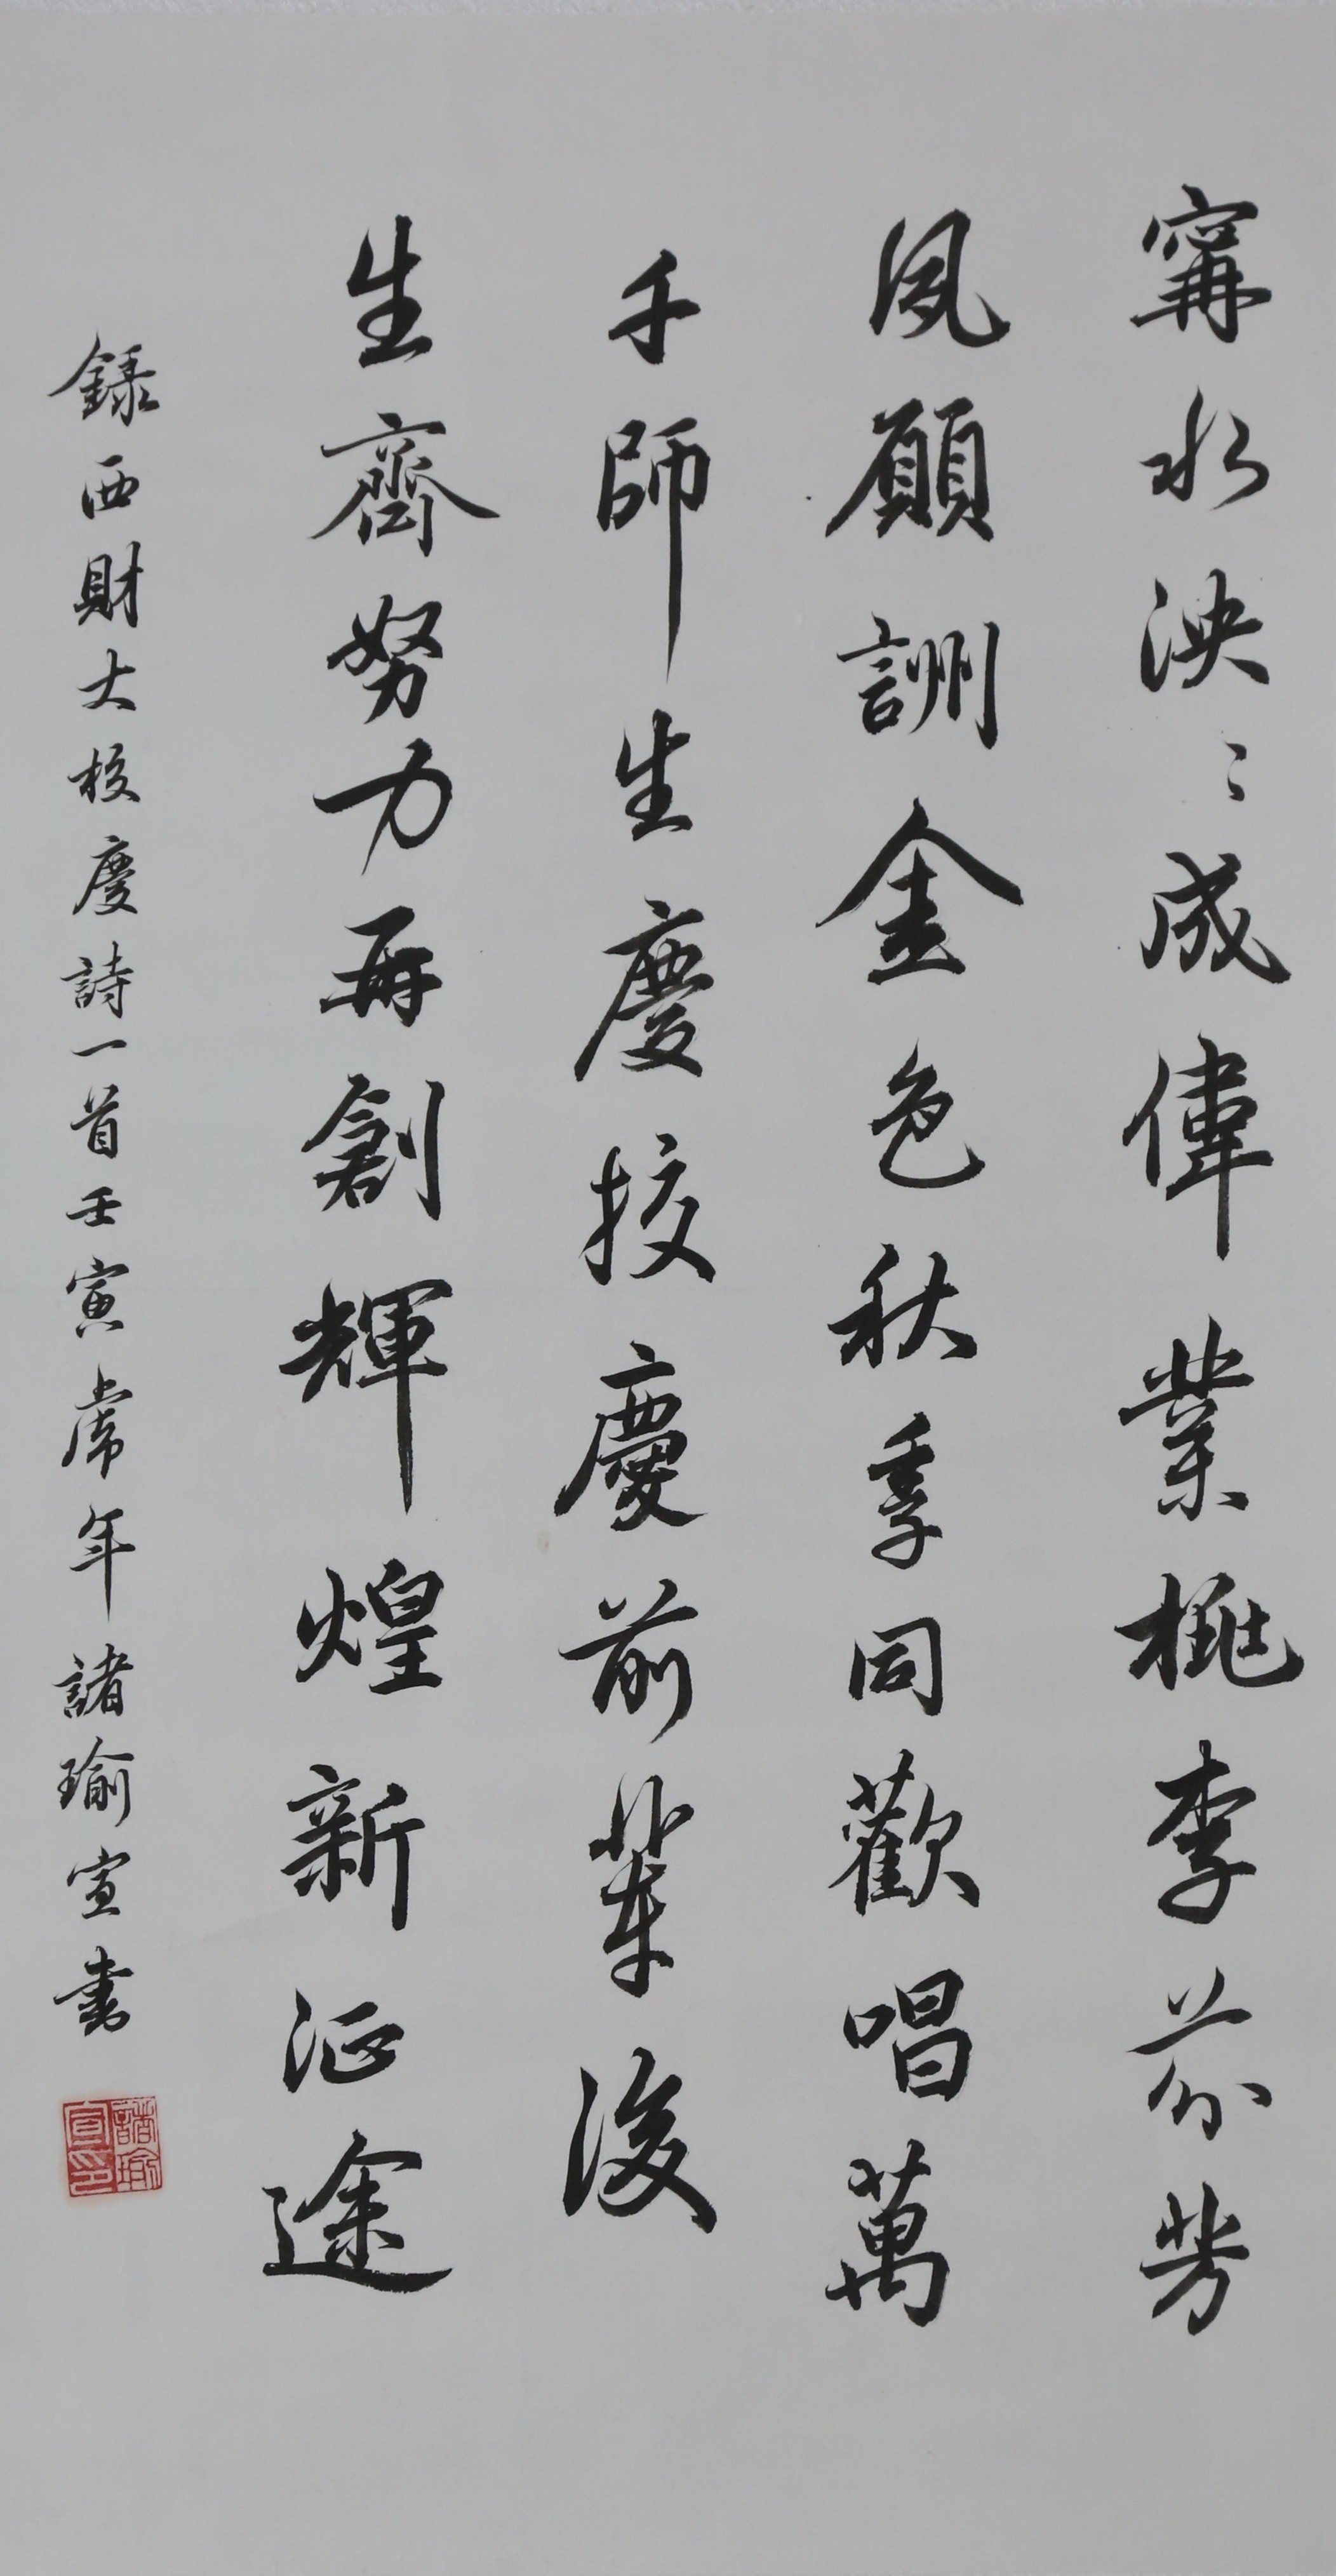 甯水泱〻成偉業桃李芬芳
夙願詶金色秋季同歡唱萬
千師生慶校慶前輩後
生齊努力再創輝煌新征途
錄西財大校慶詩一首壬寅虎年諸瑜宣書
諸瑜宣印